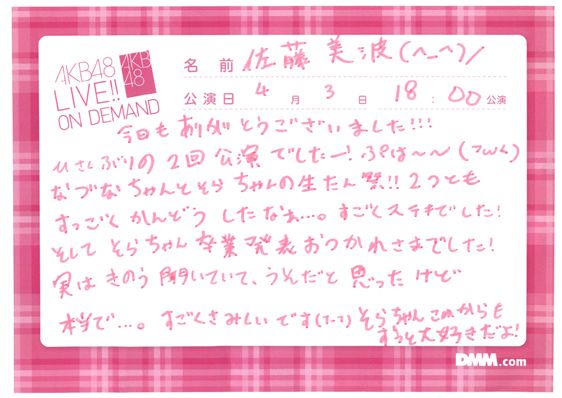 AKB48
LIVE!!
ON DEMAND
AKB
48
名前 佐藤美波(^-^)/
公演日 4月3日 18:00公演
今日もありがとうございました!!!
ひさしぶりの2回公演でしたー!ぷは〜〜(つω<)
なづなちゃんとそらちゃんの生たん祭!!2つとも
すっごくかんどうしたなぁ…。すごくステキでした!
そしてそらちゃん卒業発表おつかれさまでした!
実はきのう聞いていて、うそだと思ったけど
本当で…。すごくさみしいです(T-T)そらちゃんこれからも
ずっと大好きだよ!
DMM.com